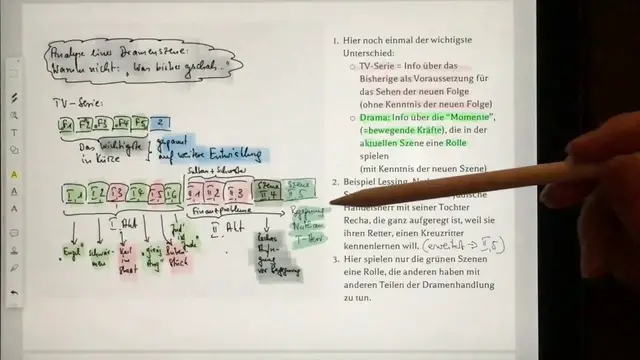 Analyse einer Dramenszene:
Warum nicht: „Was bisher geschah..."
TV-Serie:
F1 F2 F3 F4 F5 2
Das wichtigste
in Kürze
gespannt
auf weitere Entwicklung
Saladin + Schwester
I,1 I,2 I,3 I,4 I,5 I,6 II,1 II,2 II,3 Szene II,4 Szene II,5
Finanzprobleme
I. Akt
II. Akt
"Engel"
schwär-
men
Begegnung
Nathan
T-Herr
vor Begegnung
1. Hier noch einmal der wichtigste
Unterschied:
TV-Serie = Info über das
Bisherige als Voraussetzung für
das Sehen der neuen Folge
(ohne Kenntnis der neuen Folge)
Drama: Info über die "Momente",
(=bewegende Kräfte), die in der
aktuellen Szene eine Rolle
spielen
(mit Kenntnis der neuen Szene)
2. Beispiel Lessing,
Handelsherr mit seiner Tochter
Recha, die ganz aufgeregt ist, weil sie
ihren Retter, einen Kreuzritter
kennenlernen will. (erweitert → II,5)
3. Hier spielen nur die grünen Szenen
eine Rolle, die anderen haben mit
anderen Teilen der Dramenhandlung
zu tun.